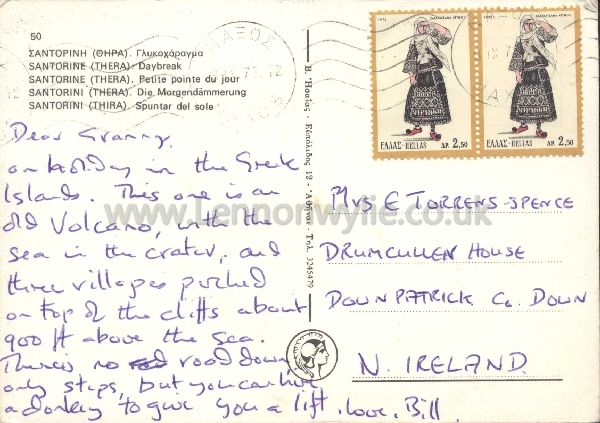 50
ΣΑΝΤΟΡΙΝΗ (ΘΗΡΑ). Γλυκοχάραγμα
SANTORINE (THERA). Daybreak
SANTORINE (THERA). Petite pointe du jour
SANTORINI (THERA). Die Morgendämmerung
SANTORINI (THIRA). Spuntar del sole
Dear Granny,
on holiday in the Greek
Islands. This one is an
old Volcano, with the
sea in the crater, and
three villages perched
on top of the cliffs about
900 ft above the sea.
There is no road down
only steps, but you can hire
a donkey to give you a lift. love, Bill
ΕΛΛΑΣ-HELLAS ΔΡ. 2,50
ΕΛΛΑΣ-HELLAS ΔΡ. 2,50
MRS E TORRENS-SPENCE
DRUMCULLEN HOUSE
DOWNPATRICK Co. DOWN
N. IRELAND
www.lennonwylie.co.uk